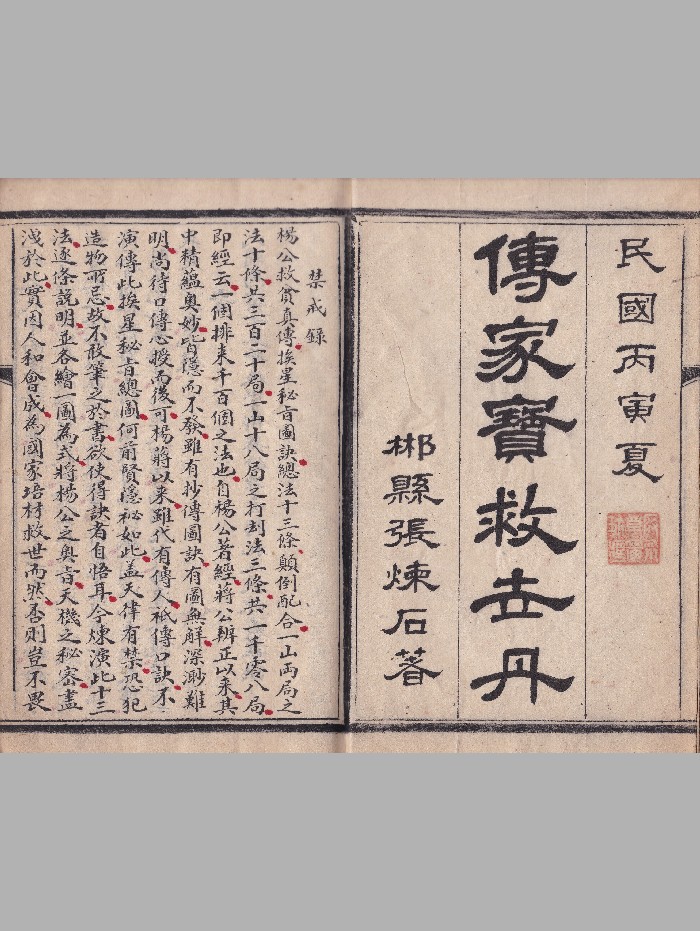 民國丙寅夏
傳家寶救世丹
郴縣張煉石著
禁戒錄
楊公救貧真傳挨星秘旨圖訣總法十三條顛倒配合一山兩局之
法十條共三百二十局一山十八局之打刦法三條共一千零八局
即經云一個排來千百個之法也自楊公著經蔣公辨正以來其
中積蘊奧妙皆隱而不發雖有抄傳圖訣有圖無解深渺難
明尚待口傳心授而後可楊蔣以來雖代有傳人祇傳口訣不
演傳此挨星秘旨總圖何前賢隱祕如此蓋天律有禁恐犯
造物所忌故不敢筆之於書欲使得訣者自悟耳今煉演此十三
法逐條說明並各繪一圖為式將楊公之奧旨天機之秘密盡
洩於此實因人和會成為國家培材救世而然否則豈不畏